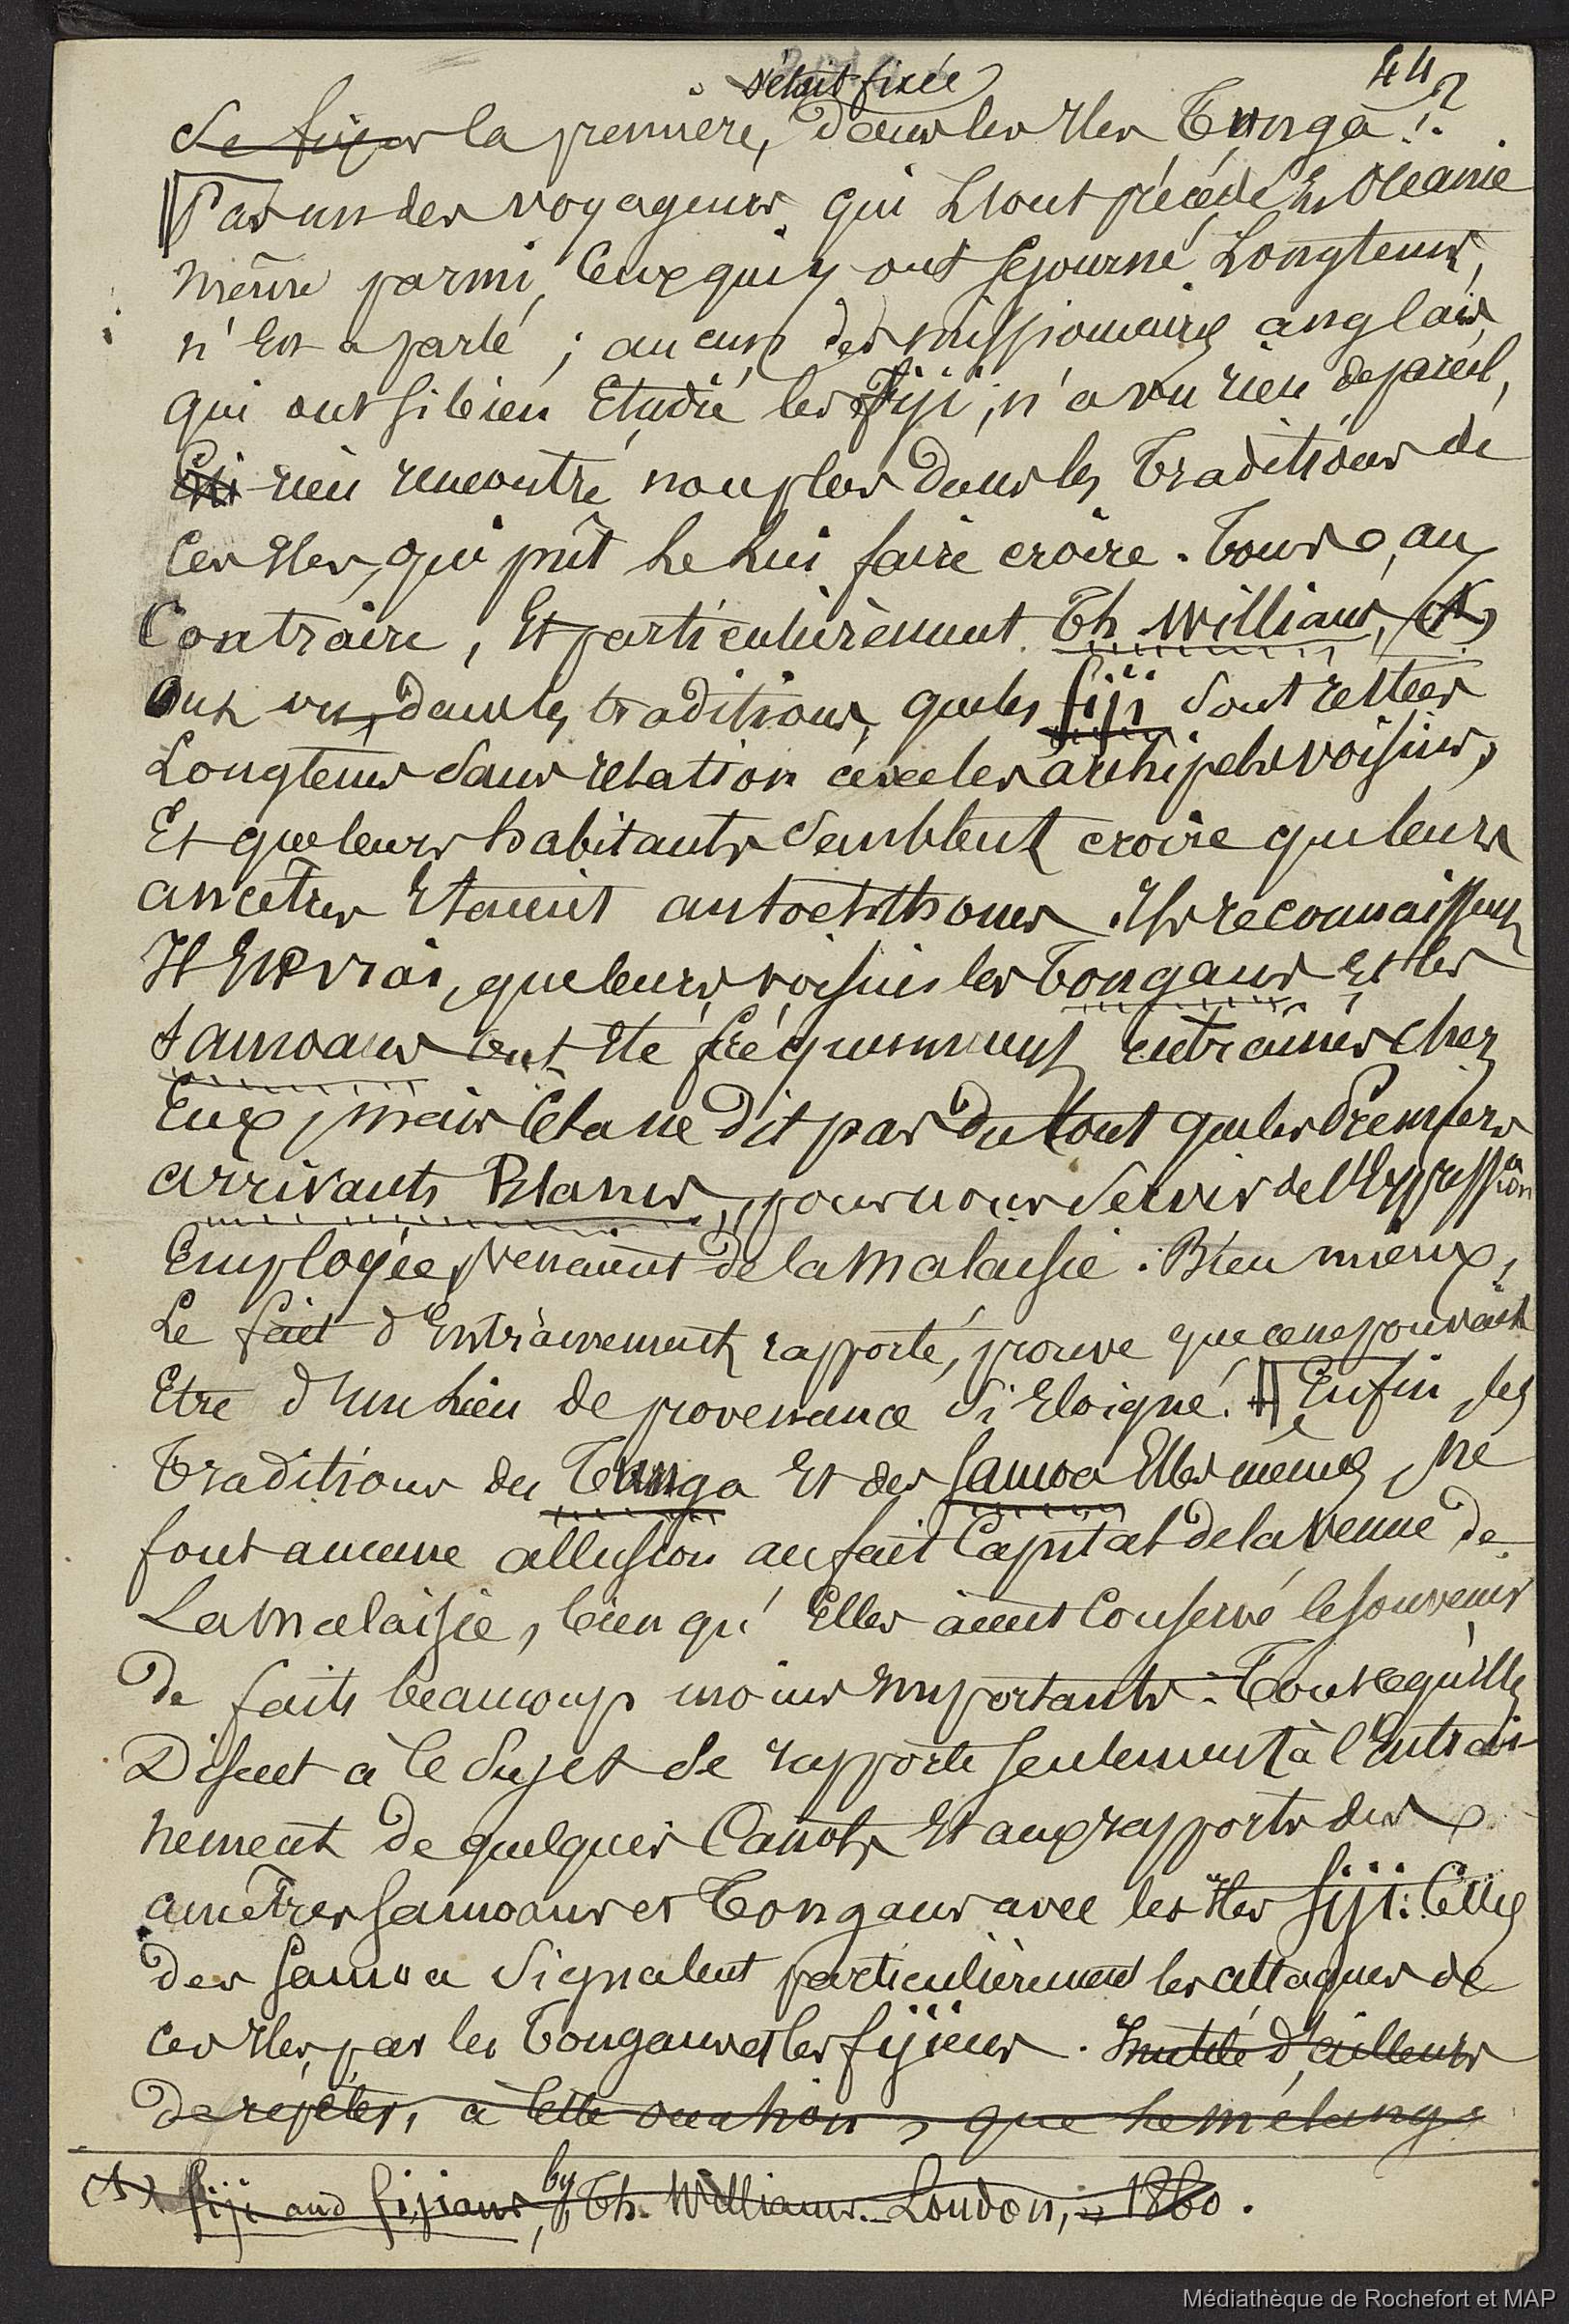 442
s'était fixée
se fixer la première, dans les Iles Tunga!.
Pas un des voyageurs qui l'ont précédé En Océanie
même parmi Ceux qui y ont séjourné Longtems,
n'En a parlé ; aucun des missionnaires anglais,
qui ont si bien Etudié les Fiji, n'a vu rien de pareil,
Et rien rencontré non plus Dans les Traditions de
Ces Iles, qui pût le lui faire croire. Tous, au
Contraire, Et particulièrement Th. Williams, (1)
Ont vu, Dans les traditions, que les Fiji sont restées
Longtems sans relation avec les archipels voisins,
Et que leurs habitants semblent croire que leurs
ancêtres Etaient autochthones. Ils reconnaissent
Il Est vrai, que leurs voisins les Tongans Et les
Samoans ont Eté fréquemment entrainés chez
Eux, mais Cela ne Dit pas Du tout que les Premiers
arrivants Blancs, pour nous servir de l'Expression
Employée, venaient de la Malaisie. Bien mieux,
Le fait d'Entrainement rapporté, prouve que ce ne pouvait
Etre d'un Lieu de provenance si Eloigné. Enfin, les
Traditions des Tunga Et des Samoa Elles mêmes, ne
font aucune allusion au fait Capital de la Venue de
La Malaisie, bien qu'Elles aient Conservé le souvenir
De faits beaucoup moins Importants. Tout ce qu'Elles
Disent à Ce sujet se rapporte seulement à l'Entrai-
nement De quelques Canots Et aux rapports des
ancêtres Samoans et Tongans avec les Iles Fiji: Celles
des Samoa signalent particulièrement les attaques de
ces Iles, par les Tongans et les fijiens. Inutile d'ailleurs
de répéter, à Cette occasion, que le mélange
(1) Fiji and fijians, by Th. Williams. London, 1860.
Médiathèque de Rochefort et MAP